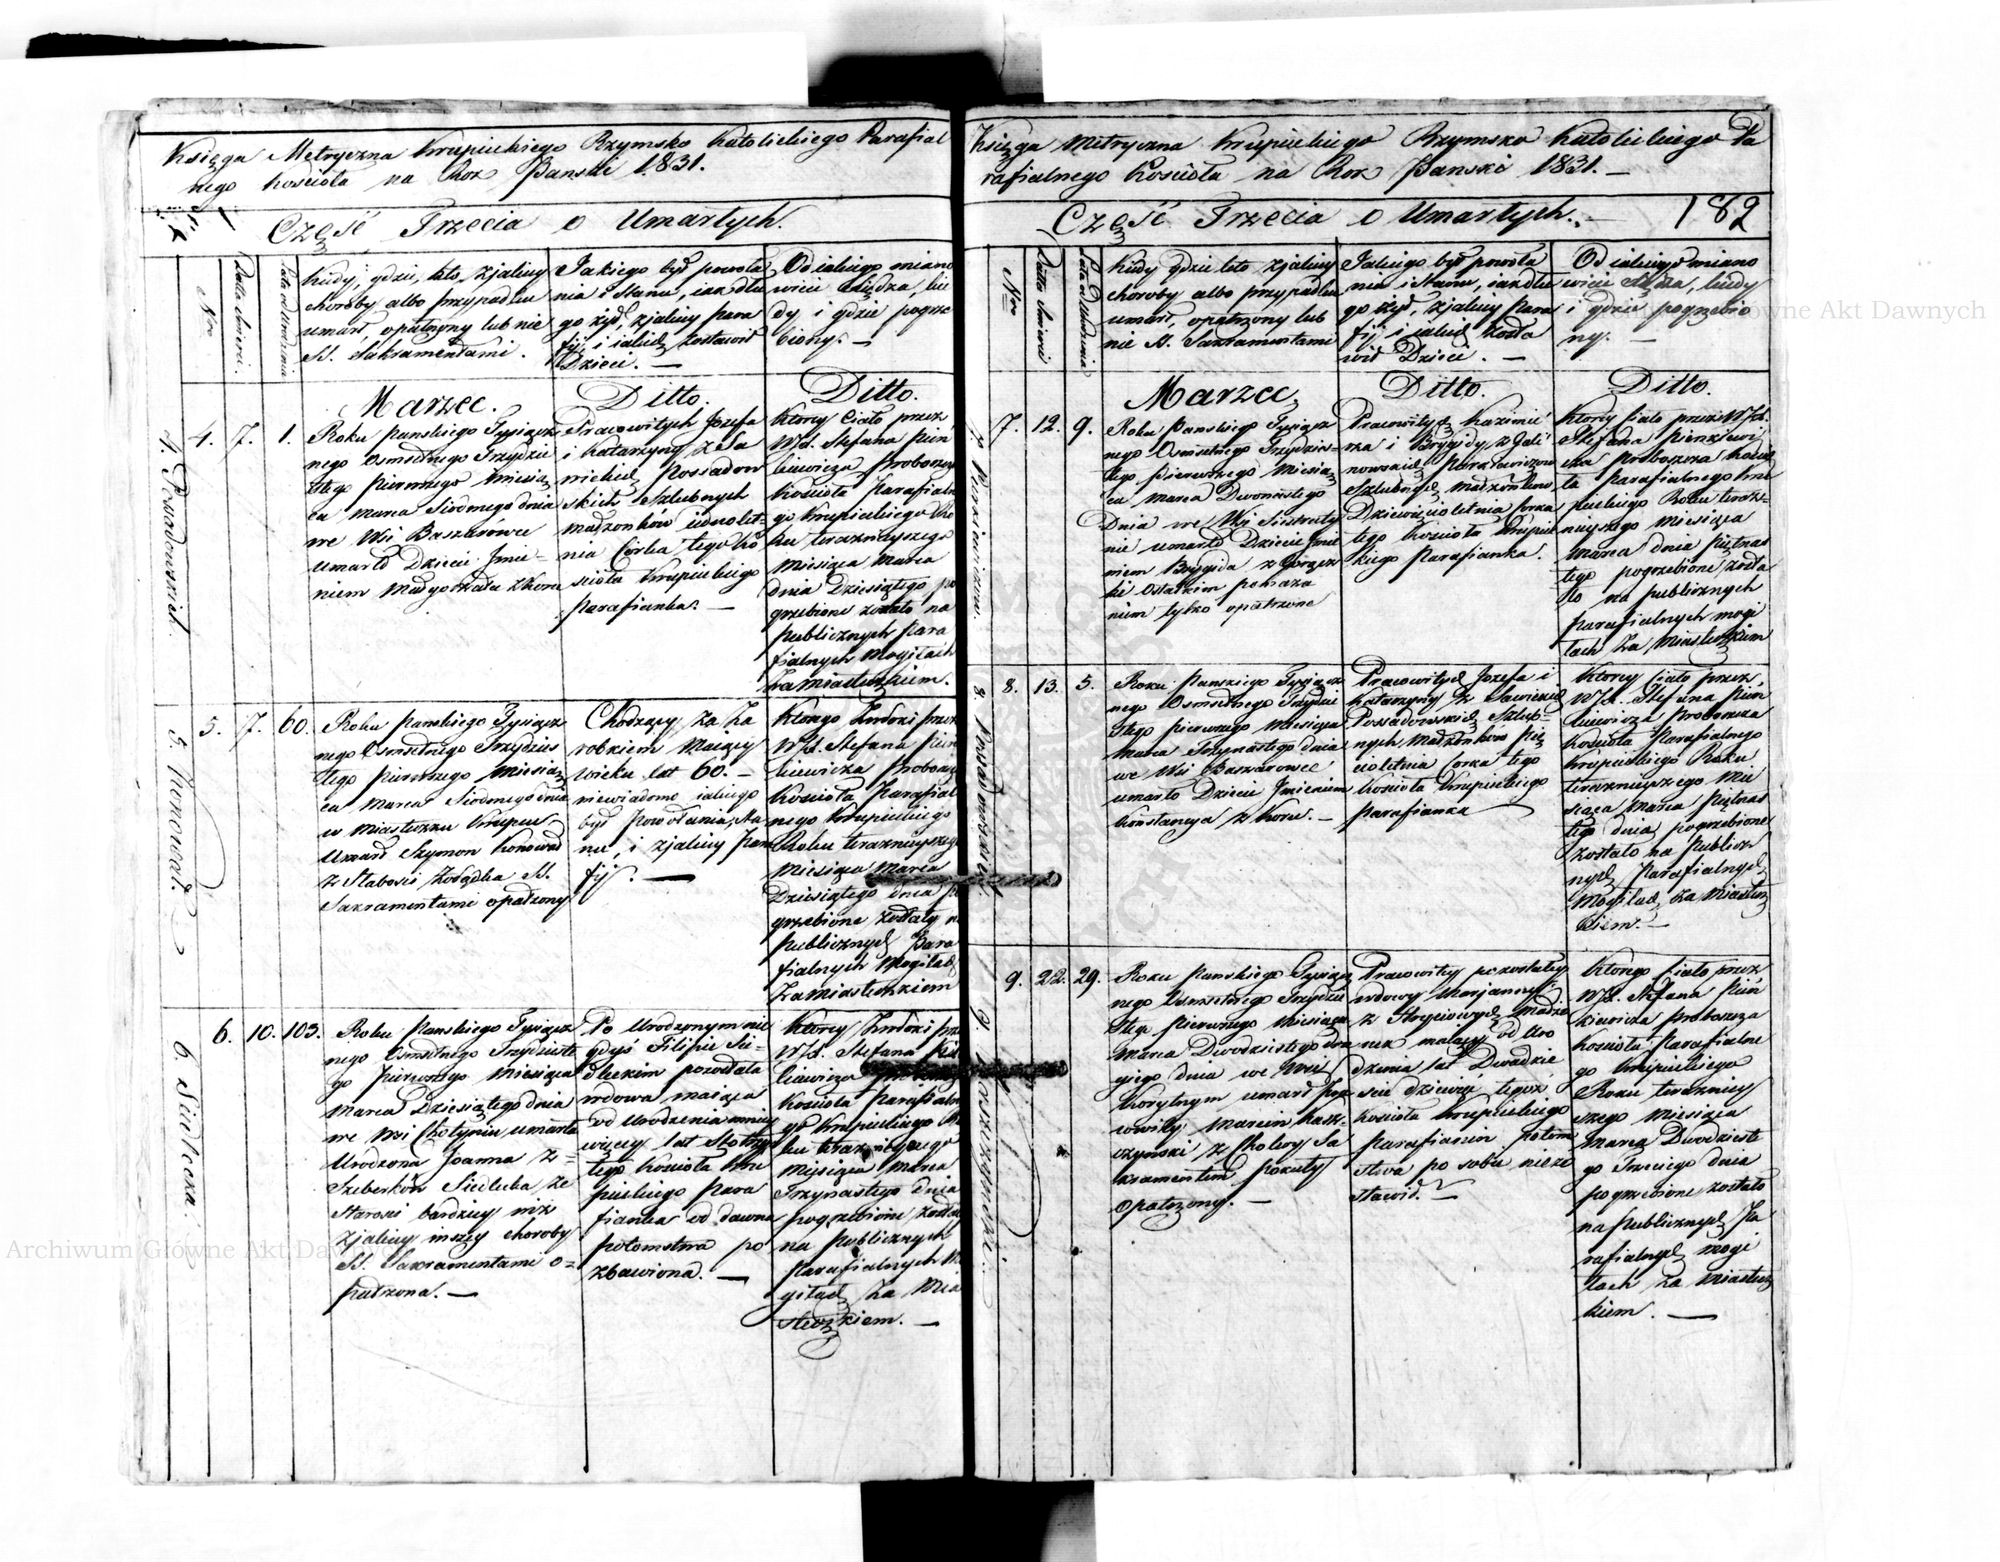 Księga Metryczna Krupieckiego Rzymsko Katolickiego Parafial
nego Kościoła na Rok Pański 1831.
Część Trzecia o Umarłych.
Nro
Datta śmierci.
Lata od Urodzenia
Kiedy, gdzie, kto, z jakiey
choroby albo przypadku
umarł, opatrzony lub nie
SS. Sakramentami.
Jakiego był powoła
nia i stanu, iak dłu
go żył, z jakiey para
fij, i iakich zostawił
Dzieci. —
Od iakiego miano
wicie Xiędza, kie
dy i gdzie pogrze
biony. —
4. Possadowskich.
4. 7. 1.
Marzec.
Roku panskiego Tysiącz
nego Osmsetnego Trzydzie
stego pierwszego miesią
ca marca Siodmego dnia
we Wsi Baszarówce
umarło Dziecie Jmie-
niem Małgorzata z Koru
Ditto.
Pracowitych Jozefa
i Katarzyny z Sa
wickich Possadow
skich Szlubnych
małżonków iednolet-
nia Corka tego Ko
ścioła Krupieckiego
parafianka. —
Ditto.
Ktorey Ciało przez
WJX. Stefana Pień
kiewicza Proboszcza
Kościoła Parafialne
go Krupieckiego Ro
ku teraznieyszego
Miesiąca Marca
dnia Dziesiątego po
grzebione zostało na
publicznych Para
fialnych Mogiłach
za miasteczkiem.
5. Konowod.
5. 7. 60.
Roku panskiego Tysiącz
nego Osmsetnego Trzydzies
tego pierwszego Miesią
ca Marca Siodmego dnia
w Miasteczku Krupcu
Umarł Szymon Konowod
z Słabosci Żołądka SS.
Sakramentami opatrzony
Chodzący za Za
robkiem Maiący
wieku lat 60. —
niewiadomo iakiego
był Powołania, sta
nu, i z jakiey Para
fij. —
Ktorego Zwłoki przez
WJX. Stefana Pień
kiewicza Proboszcza
Kościoła Parafial
nego Krupieckiego
Roku teraznieyszego
Miesiąca Marca
Dziesiątego dnia po
grzebione zostały na
Publicznych Para
fialnych Mogiłach
za miasteczkiem
6. Siedlecka
6. 10. 103.
Roku panskiego Tysiącz
nego Osmsetnego Trzydzieste
go pierwszego miesiąca
Marca Dziesiątego dnia
we Wsi Chotyniu umarła
Urodzona Joanna z
Szeberków Siedlecka ze
Starosci bardziey niż
z jakiey inszey choroby
SS. Sakramentami o=
patrzona. —
Po Urodzonym nie
gdyś Filipie Sie-
dleckim pozostała
wdowa maiąca
od Urodzenia mniey
więcey lat Sto trzy
tego Kościoła Kru
pieckiego Para
fianka od dawna
potomstwa po
zbawiona. —
Ktorey Zwłoki przez
WJX. Stefana Pień
kiewicza Proboszcza
Kościoła Parafialne
go Krupieckiego Ro
ku teraznieyszego
Miesiąca Marca
Trzynastego dnia
pogrzebione zostały
na publicznych
Parafialnych Mo
giłach za Mia
steczkiem. —
Księga Metryczna Krupieckiego Rzymsko Katolickiego Pa
rafialnego Kościoła na Rok Pański 1831. —
Część Trzecia o Umarłych. —
182
Nro
Datta śmierci
Lata od Urodzenia
Kiedy gdzie kto z jakiey
choroby albo przypadku
umarł, opatrzony lub
nie SS. Sakramentami
Jakiego był powoła
nia i Stanu, iak dłu
go żył, z jakiey Para
fij i iakich zosta
wił Dzieci. —
Od iakiego miano
wicie Xiędza, kiedy
i gdzie pogrzebio
ny. —
7. 12. 9.
Marzec.
Roku Panskiego Tysiącz
nego Osmsetnego Trzydzies-
tego pierwszego Miesią
ca Marca Dwonastego
Dnia we Wsi Siestraty
nie umarło Dziecie Jmie
niem Brygida z Gorącz
ki ostatnim pomaza
niem tylko opatrzone
Ditto.
Pracowitych Kazimie
rza i Brygidy z Gali
nowskich
Szlubnych małżonków
Dziewięcioletnia Corka
tego Kościoła Krupiec
kiego Parafianka.
Ditto.
Ktorey Ciało przez WJX.
Stefana Pienkiewi
cza proboszcza Kościo
ła Parafialnego Kru
pieckiego Roku teraz-
nieyszego Miesiąca
Marca dnia Piętnas
tego pogrzebione zosta
ło na publicznych
parafialnych mogi
łach za Miasteczkiem
8. Possadowskich
8. 13. 5.
Roku Panskiego Tysiącz
nego Osmsetnego Trzydzie
stego pierwszego Miesiąca
Marca Trzynastego dnia
we Wsi Baszarowce
umarło Dziecie Jmieniem
Konstancya z Koru. —
Pracowitych Jozefa i
Katarzyny z Sawickich
Possadowskich Szlub-
nych Małżonkow pię
cioletnia Corka tego
Kościoła Krupieckiego
parafianka
Ktorey Ciało przez
WJX. Stefana Pien
kiewicza Proboszcza
Kościoła Parafialnego
Krupieckiego Roku
teraznieyszego Mie
siąca Marca Piętnas
tego dnia pogrzebione
zostało na Publicz
nych Parafialnych
Mogiłach za Miastecz
kiem. —
9. 22. 29.
Roku Panskiego Tysiącz
nego Osmsetnego Trzydzie
stego pierwszego Miesiąca
Marca Dwodziestego dru
giego dnia we Wsi
Korytnym umarł Pra
cowity Marcin Kasz-
czynski z Cholery Sa
kramentem pokuty
opatrzony. —
Pracowitey pozostałey
wdowy Marjanny
z Stryiowych małżo
nek maiący od Uro
dzenia lat Dwadzie
scie dziewięć tegoż
Kościoła Krupieckiego
parafianin potom
stwa po sobie niezo
stawił. —
Ktorego Ciało przez
WJX. Stefana Pień
kiewicza Proboszcza
Kościoła Parafialne
go Krupieckiego
Roku teraźniey
szego Miesiąca
Marca Dwodzieste
go Trzeciego dnia
pogrzebione zostało
na Publicznych Pa
rafialnych mogi
łach za Miastecz
kiem. —
Archiwum Główne Akt Dawnych